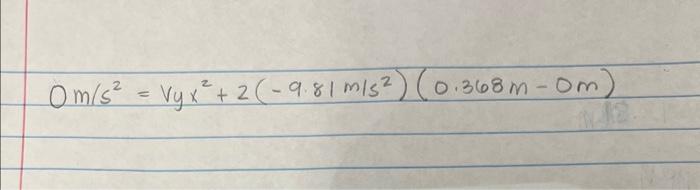 0 m/s² = Vyx² + 2(-9.81 m/s²)(0.368m - 0m)